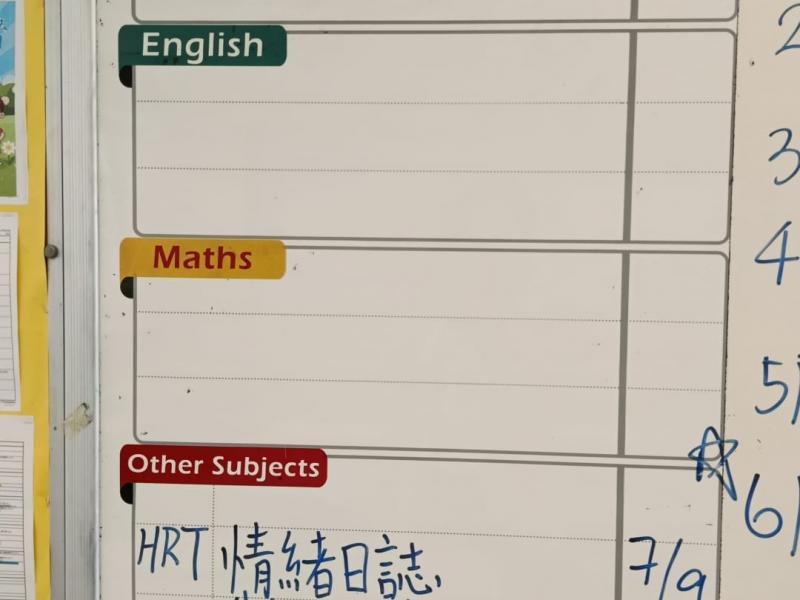 English
Maths
Other Subjects
HRT 情緒日誌 7/9
2
3
4
5
6